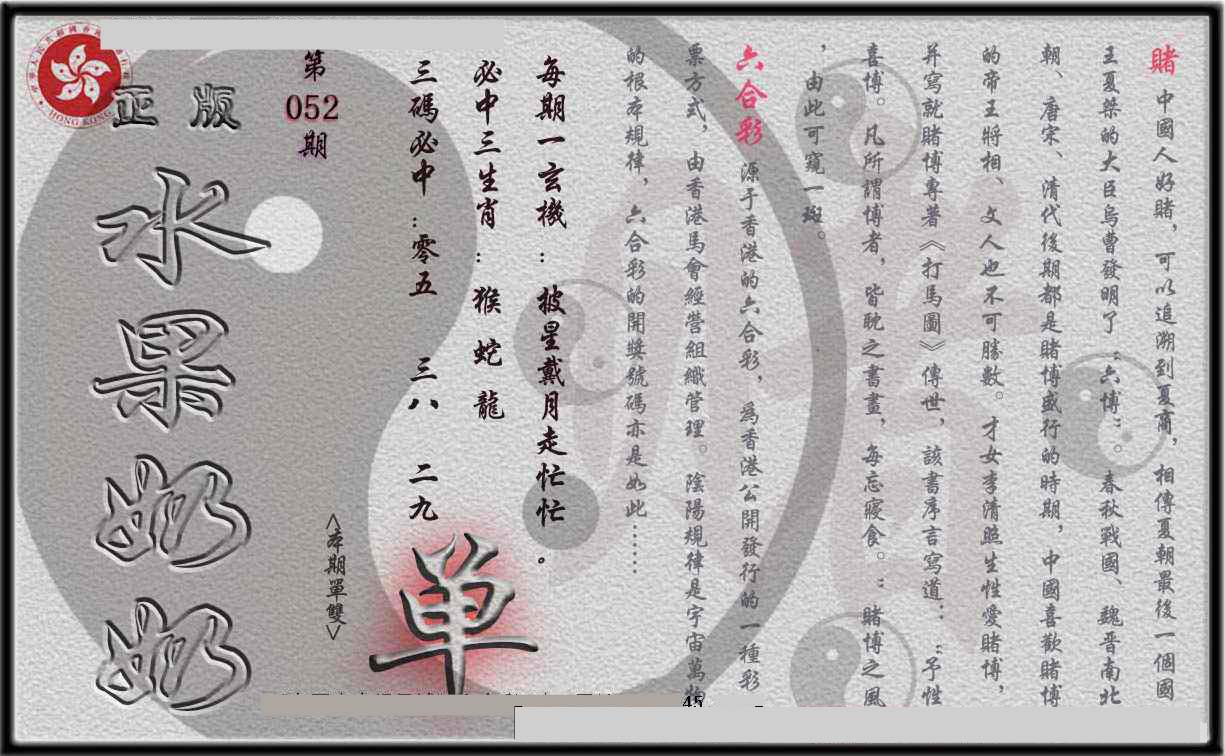 賭 中國人好賭，可以追溯到夏商，相傳夏朝最後一個國
王夏桀的大臣烏曹發明了“六博”。春秋戰國、魏晋南北
朝、唐宋、清代後期都是賭博盛行的時期，中國喜歡賭博
的帝王將相、文人也不可勝數。才女李清照生性愛賭博，
并寫就賭博專著《打馬圖》傳世，該書序言寫道：“予性
喜博。凡所謂博者，皆耽之書畫，每忘寢食。：賭博之風
，由此可窺一斑。
六合彩 源于香港的六合彩，為香港公開發行的一種彩
票方式，由香港馬會經營組織管理。陰陽規律是宇宙萬物
的根本規律，六合彩的開獎號碼亦是如此……
每期一玄機：披星戴月走忙忙。
必中三生肖：猴 蛇 龍
三碼必中：零五 三八 二九
單
第
052
期
<本期單雙>
正版
水果奶奶
HONG KONG
45